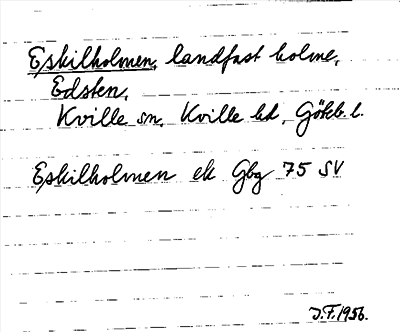 Eskilholmen, landfast holme,
Edsten,
Kville sn, Kville hd, Göteb. l.
Eskilholmen ek Gbg 75 SV
J.F. 1956.